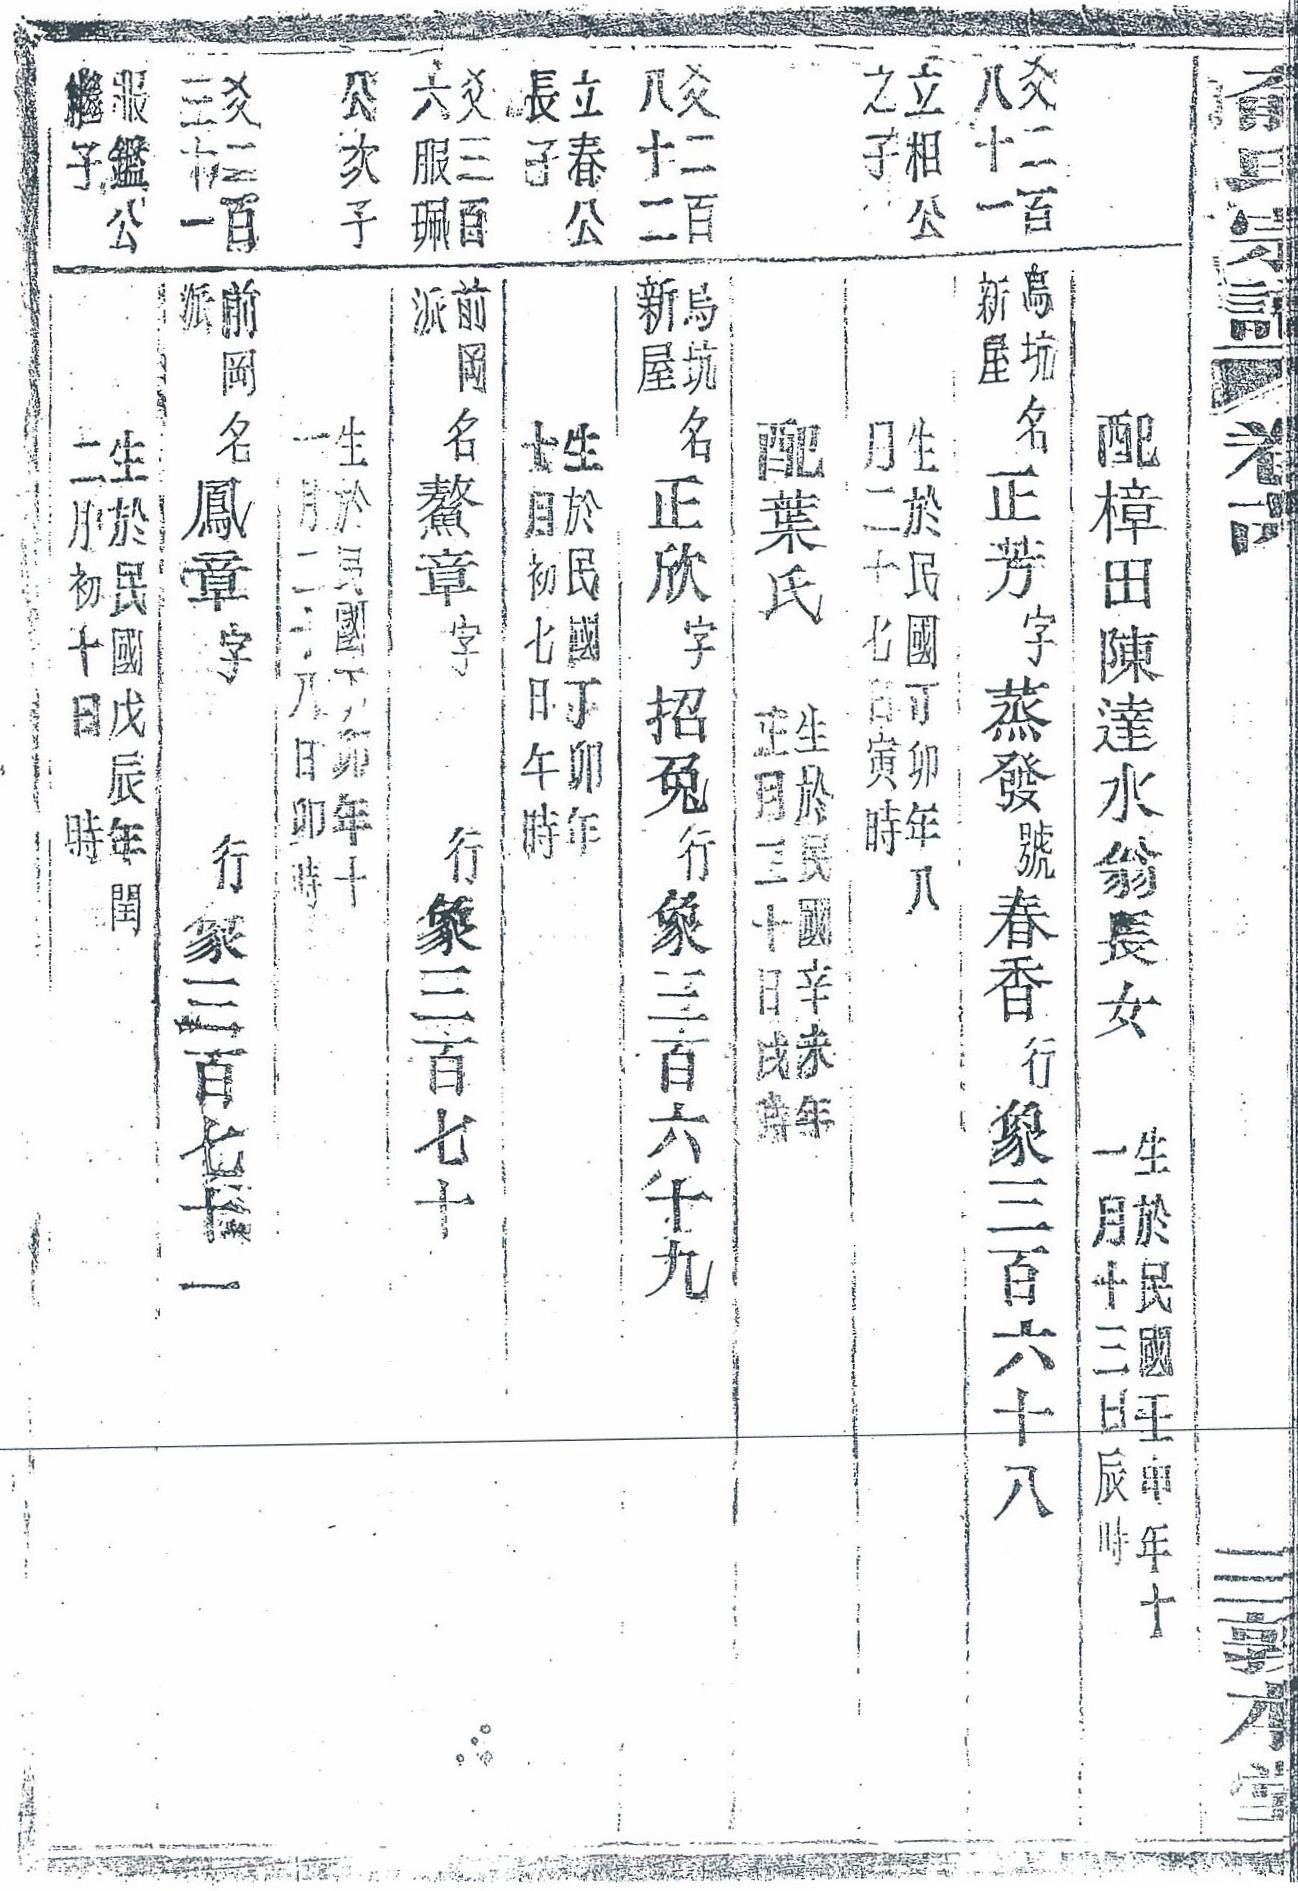 宗譜 卷
敦本堂
配樟田陳達水翁長女
生於民國壬申年十
一月十三日辰時
爻二百
八十一
烏坑
新屋
名正芳字蒸發號春香行象三百六十八
立相公
之子
生於民國丁卯年八
月二十七日寅時
配葉氏
生於民國辛未年
正月三十日戌時
爻二百
八十二
烏坑
新屋
名正欣字招兎行象三百六十九
立春公
長子
生於民國丁卯年
十月初七日午時
爻三百
六服珮
前岡
派
名鰲章字 行象三百七十
公次子
生於民國丁卯年十
一月二十八日卯時
爻三百
三十一
前岡
派
名鳳章字 行象三百七十一
服鑑公
繼子
生於民國戊辰年閏
二月初十日 時